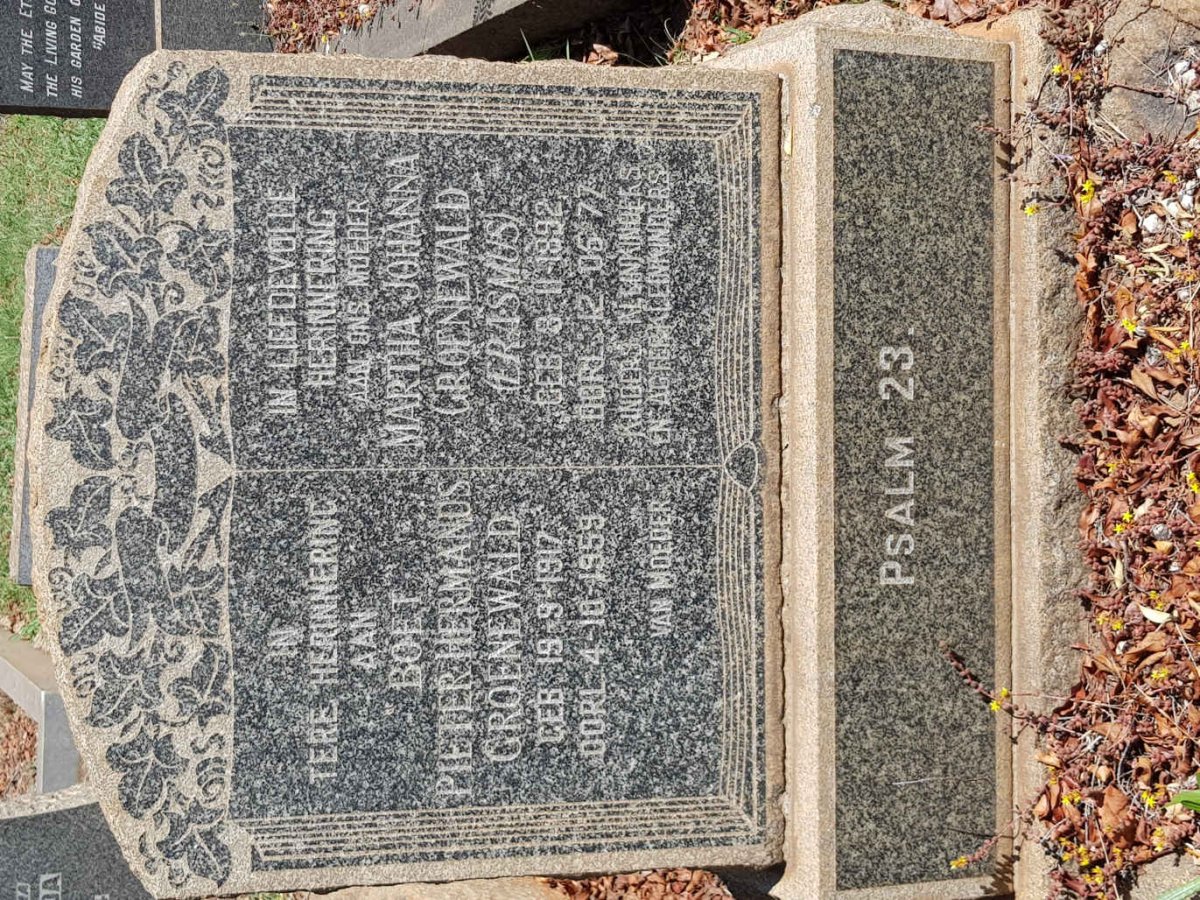 IN
TERE HERINNERING
AAN
BOET
PIETER HERMANUS
GROENEWALD
GEB 19-9-1917
OORL 4-10-1959
VAN MOEDER
IN LIEFDEVOLLE
HERINNERING
AAN ONE MOEDER
MARTHA JOHANNA
GROENEWALD
(ERASMUS)
GEB 8 11 1892
OORL 12-06-77
KINDERS
EN AGTERKLEINKINDERS
PSALM 23.
MAY THE
THE LIVING
HIS GARDEN
"ABIDE